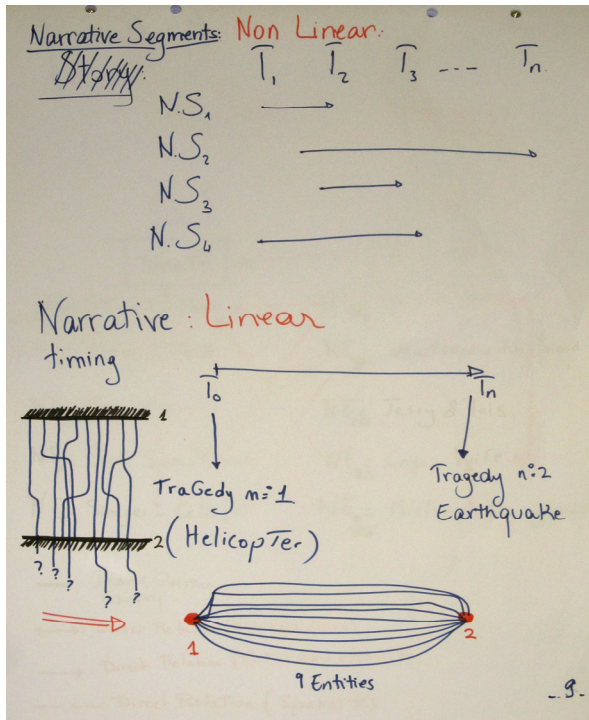 Narrative Segments: Non Linear.
Story.
T1 T2 T3 --- Tn.
N.S1
N.S2
NS3
N.S4
Narrative : Linear
timing
T0 Tn
1
TraGedy n=1
Tragedy n=2
2 (HelicopTer)
Earthquake
? ? ? ? ?
1 2
9 Entities
- 9 -